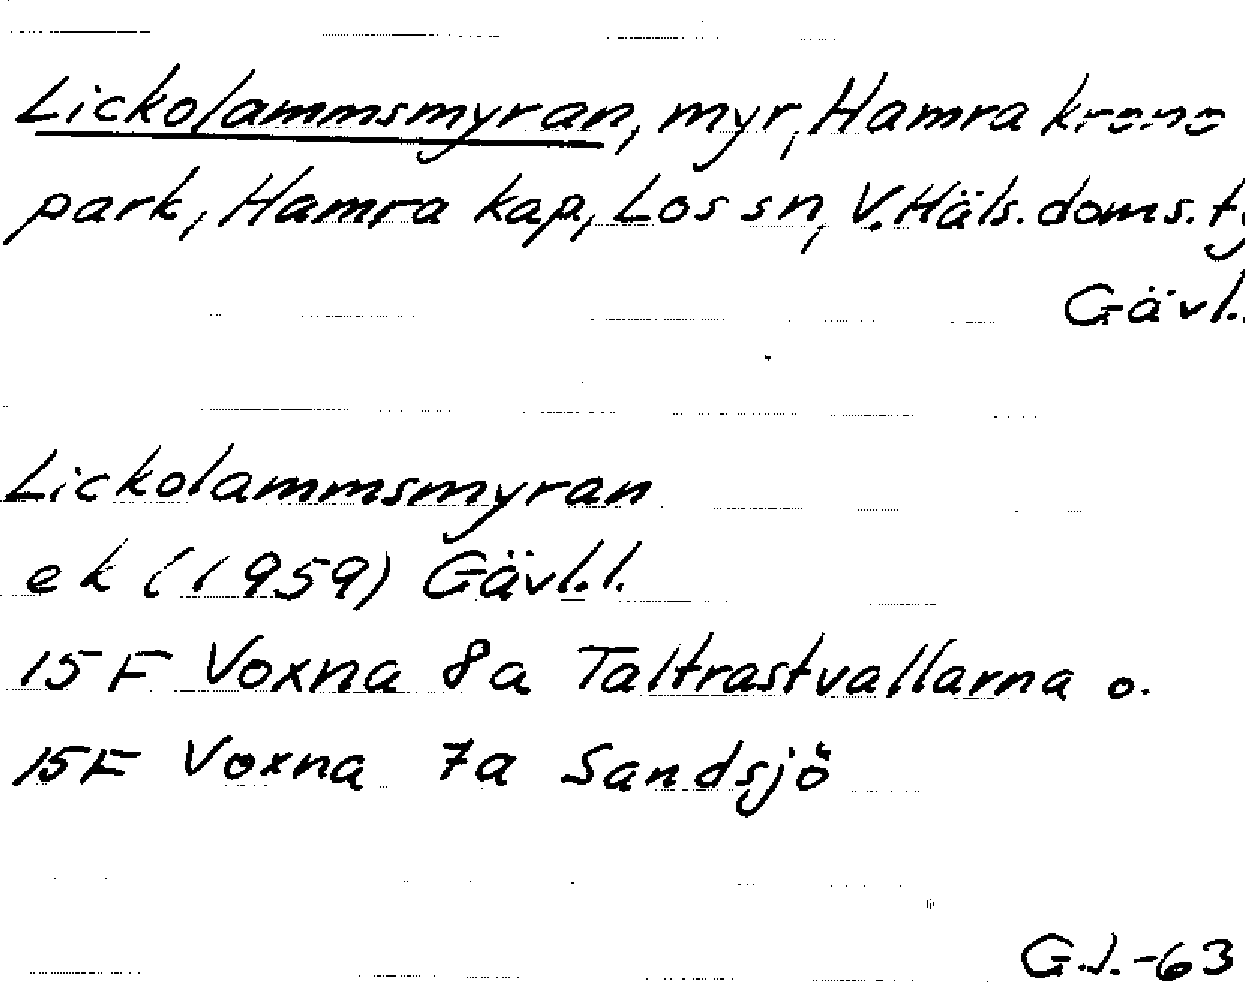 Lickolammsmyran, myr, Hamra krono
park, Hamra kap, Los sn, V. Häls. doms.
Gävl.
Lickolammsmyran
ek (1959) Gävl.l.
15F Voxna 8a Taltrastvallarna o.
15F Voxna 7a Sandsjö
G.J.-63